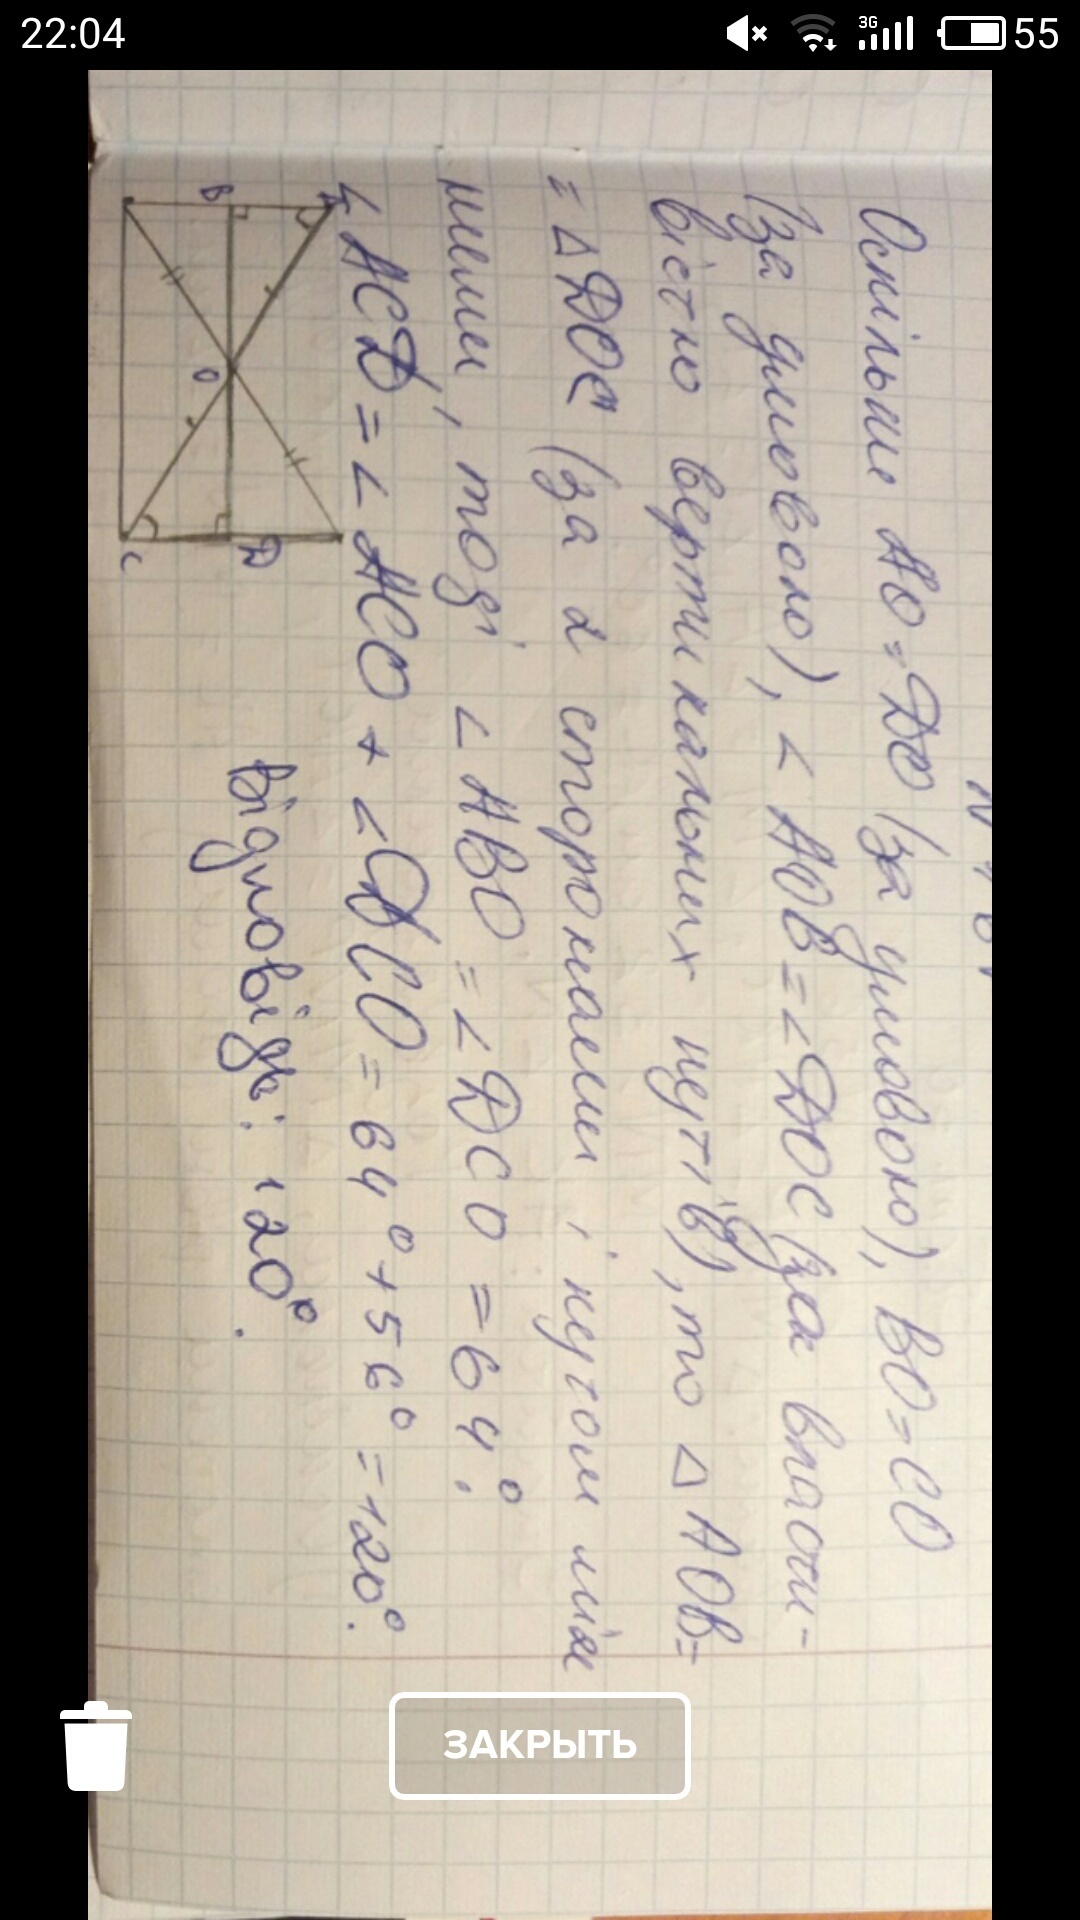 22:04
3G
55
Оскільки AO=DO (за умовою), BO=CO
(за умовою), < AOB=<DOC (за власти-
вістю вертикальних кутів), то △ AOB=
= △DOC (за 2 сторонами і кутом між
ними, тоді < ABO = < DCO = 64°.
< ACD = < ACO + < DCO = 64° + 56° = 120°.
Відповідь: 120°.
B
O
D
C
ЗАКРЫТЬ